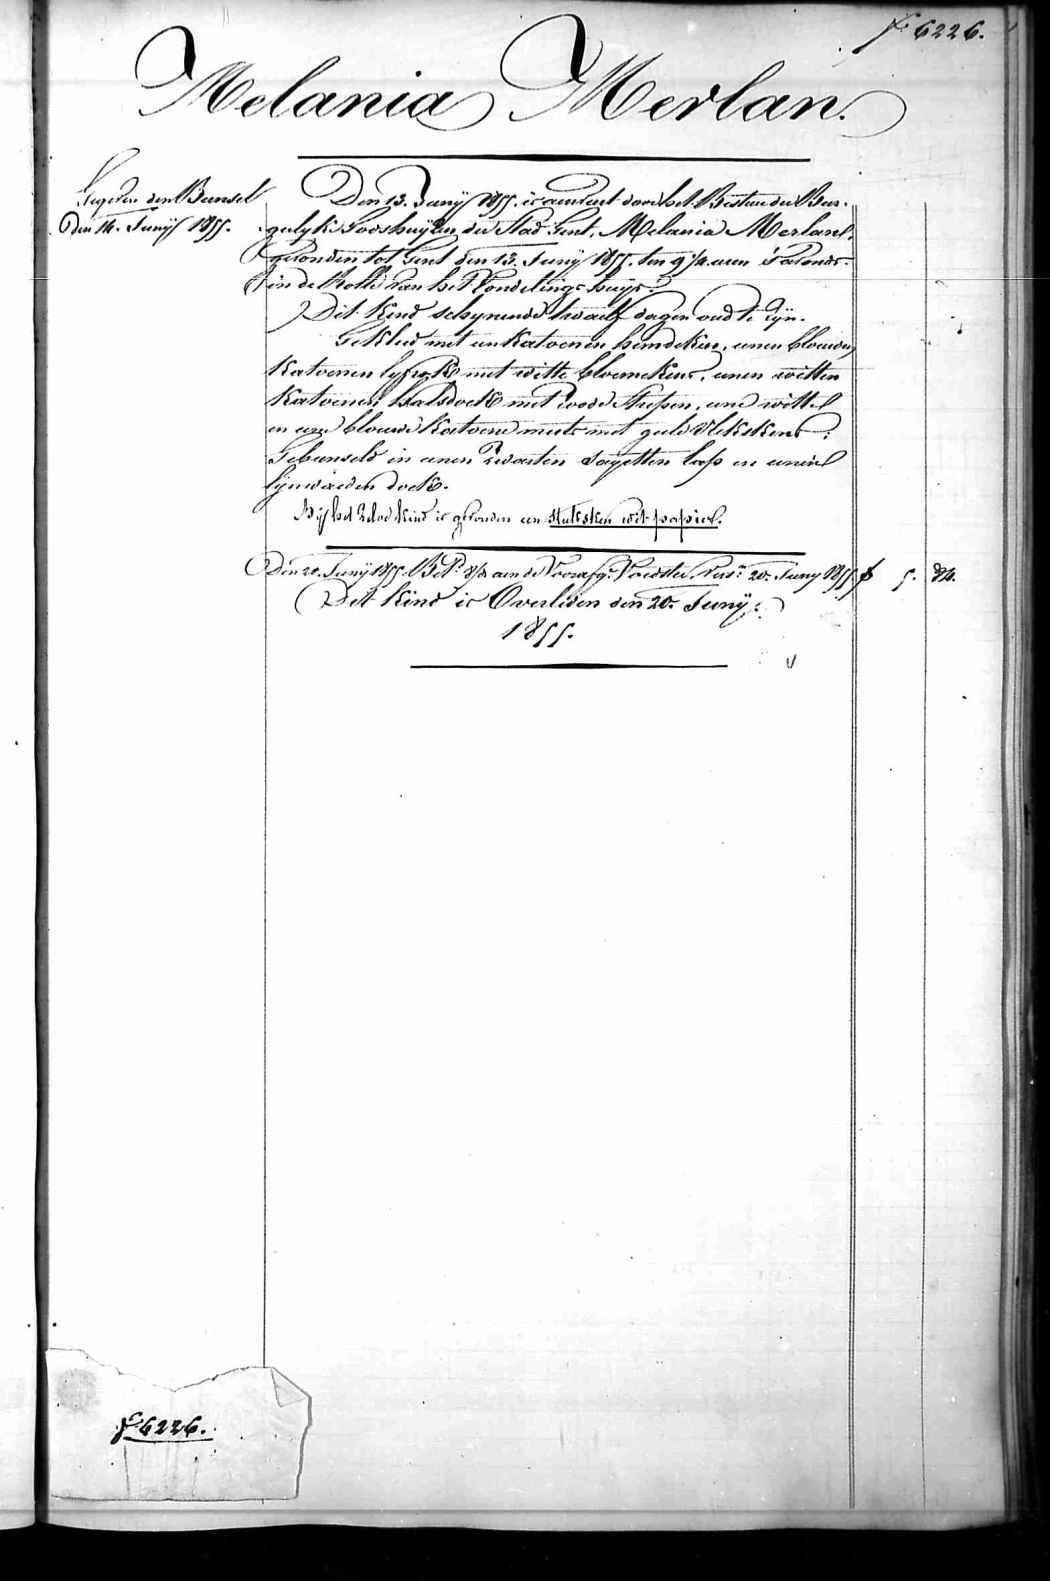 f° 6226.
Melania Merlan.
Gegeven den Bunsel
den 14. Junÿ 1855.
Den 13. Junÿ 1855. is aenveert door het Bestuer der Bur-
gelyke Godshuÿzen der Stad Gent, Melania Merlan,
gevonden tot Gent den 13. Junÿ 1855. ten 9 1/2 uren 's avonds
in de Rolle van het Vondelingshuys.
Dit kind schynende twaelf dagen oud te zyn.
Gekleed met een Katoenen hemdeken, eenen blauwen
Katoenen lyfrok met witte bloemekens, eenen witten
Katoenen halsdoek met roode strepen, eene witte
en eene blauwe Katoene muts met gele vlekskens;
Gebunseld in eenen zwarten sayetten lap en eenen
lynwaeden doek.
Bÿ het zelve kind is gevonden een stuksken wit papier.
Den 20. Junÿ 1855. Bet. aen de Voedster 20. Juny 1855 f 5. 84.
(Dit kind is Overleden den 20. Junÿ
1855.)
f° 6226.